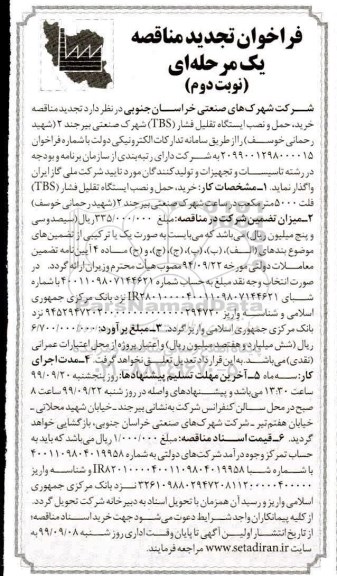 فراخوان تجدید مناقصه
یک مرحله‌ای
(نوبت دوم)
شرکت شهرک‌های صنعتی خراسان‌جنوبی در نظر دارد تجدید مناقصه
خرید، حمل و نصب ایستگاه تقلیل فشار (TBS) شهرک صنعتی بیرجند ۲ (شهید
رحمانی خوسف) را از طریق سامانه تدارکات الکترونیکی دولت با شماره فراخوان
۲۰۹۹۰۰۱۲۹۸۰۰۰۰۱۵ به شرکت دارای رتبه‌بندی از سازمان برنامه و بودجه
در رشته تأسیسات و تجهیزات و تولیدکنندگان مورد تایید شرکت ملی گاز ایران
واگذار نماید. ۱ـ مشخصات کار: خرید، حمل و نصب ایستگاه تقلیل فشار (TBS)
فلت ۵۰۰۰ مترمکعب در ساعت شهرک صنعتی بیرجند ۲ (شهید رحمانی خوسف)
۲ـ میزان تضمین شرکت در مناقصه: مبلغ ۳۳۵/۰۰۰/۰۰۰ ریال (سیصد و سی
و پنج میلیون ریال) می‌باشد که می‌بایست به صورت یک یا ترکیبی از تضمین‌های
موضوع بندهای (الف)، (ب)، (پ)، (ج)، (چ)، و (ح) ماده ۴ آیین‌نامه تضمین
معاملات دولتی مورخه ۹۴/۰۹/۲۲ مصوب هیأت محترم وزیران ارائه گردد. در
صورت انتخاب وجه نقد مبلغ به حساب شماره ۴۰۰۱۱۰۹۸۰۷۱۴۴۶۲۱ با شماره
شبای نزد بانک مرکزی جمهوری
اسلامی و شناسه واریز نزد
بانک مرکزی جمهوری اسلامی واریز گردد. ۳ـ مبلغ برآورد: ۶/۷۰۰/۰۰۰/۰۰۰
ریال (شش میلیارد و هفتصد میلیون ریال) و اعتبار پروژه از محل اعتبارات عمرانی
(نقدی) می‌باشد. به این قرارداد تعدیل تعلق نخواهد گرفت. ۴ـ مدت اجرای
کار: سه ماه ۵ـ آخرین مهلت تسلیم پیشنهادها: روز پنجشنبه ۹۹/۰۹/۲۰
ساعت ۱۳:۳۰ می‌باشد و پیشنهادهای واصله در روز شنبه ۹۹/۰۹/۲۲ ساعت ۸
صبح در محل سالن کنفرانس شرکت به نشانی بیرجند ـ خیابان شهید محلاتی ـ
خیابان هفتم تیر ـ شرکت شهرک‌های صنعتی خراسان جنوبی، بازگشایی خواهد
گردید. ۶ـ قیمت اسناد مناقصه: مبلغ ۱/۰۰۰/۰۰۰ ریال می‌باشد که باید به
حساب تمرکز وجوه درآمد شرکت‌های دولتی به شماره ۴۰۰۱۱۰۹۸۰۴۰۱۹۹۵۸
با شماره شبا و شناسه واریز
نزد بانک مرکزی جمهوری
اسلامی واریز و رسید آن همزمان با تحویل اسناد به دبیرخانه شرکت تحویل گردد.
از کلیه پیمانکاران واجد شرایط دعوت می‌شود جهت خرید اسناد مناقصه؛
از تاریخ انتشار اولین آگهی تا پایان وقت اداری روز شنبه ۹۹/۰۹/۰۸ به
سایت www.setadiran.ir مراجعه فرمایند.